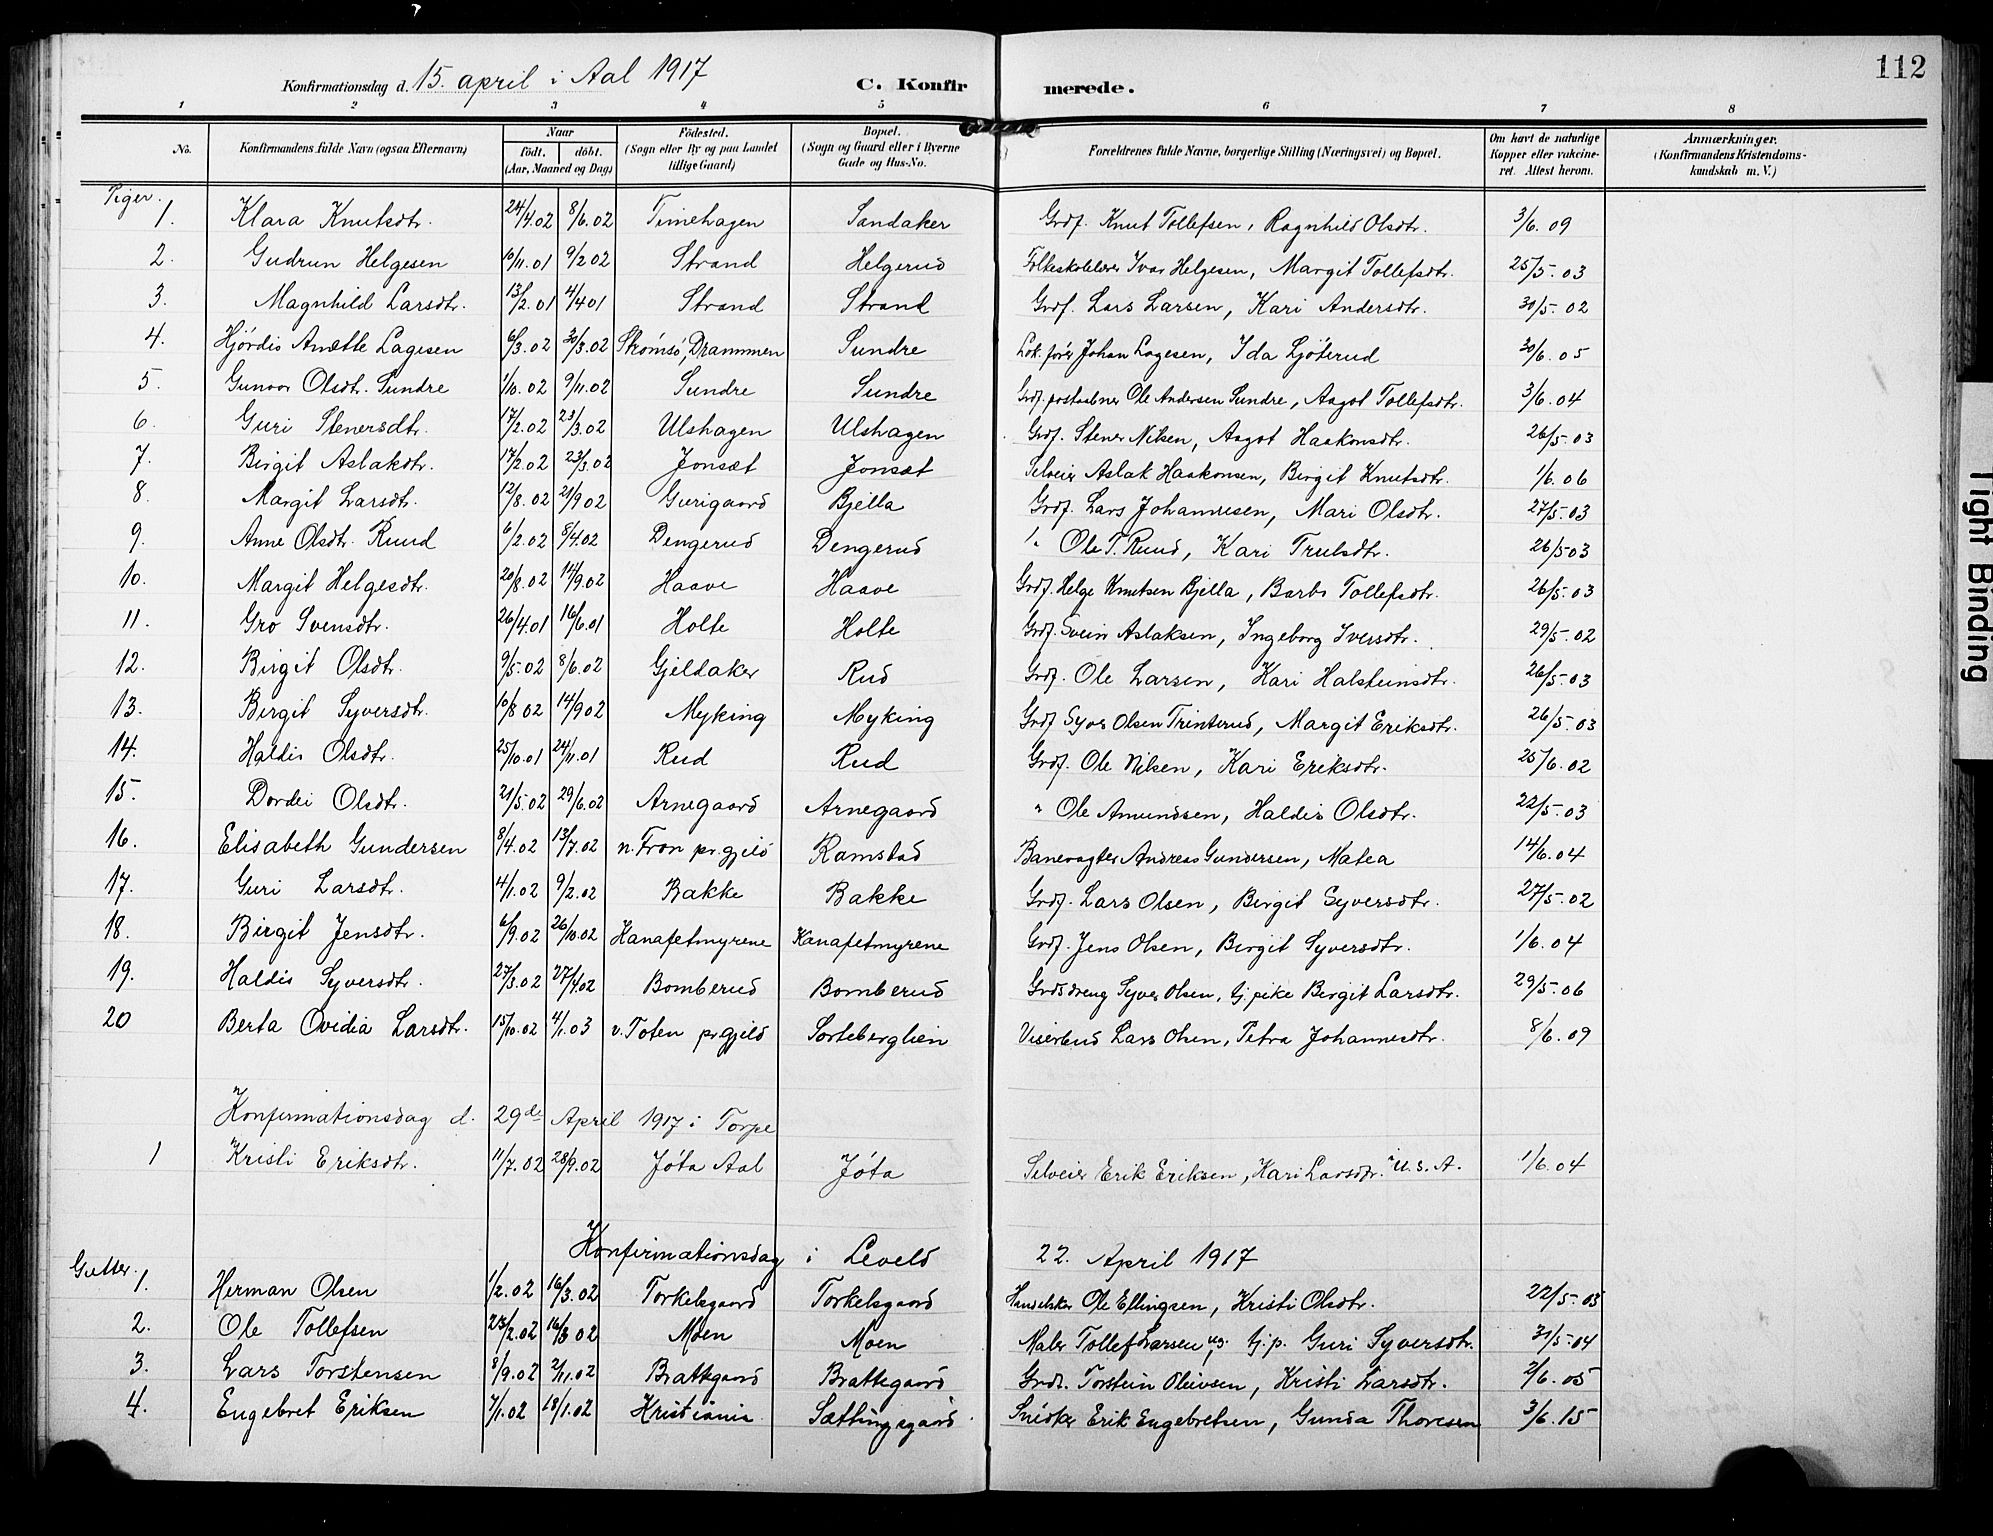 112
Konfirmationsdag d. 15. april i Aal 1917 C. Konfirmerede.
1 2 3 4 5 6 7 8
No. Konfirmandens fulde Navn (ogsaa Efternavn) Naar født. døbt. (Aar, Maaned og Dag) Födested. (Sogn eller By og paa Landet tillige Gaard) Bopæl. (Sogn og Gaard eller i Byerne Gade og Hus-No. Forældrenes fulde Navne, borgerlige Stilling (Næringsvei) og Bopæl. Om havt de naturlige Kopper eller vakcineret. Attest herom. Anmærkninger. (Konfirmandens Kristendomskundskab m. V.)
Piger.
1. Klara Knutsdtr. 24/4.02 8/6.02 Timehagen Sandaker Grdf. Knut Tollefsen, Ragnhild Olsdtr. 3/6.09
2. Gudrun Helgesen 10/11.01 9/2 02 Strand Helgerud Folkeskolelærer Ivar Helgesen, Margit Tollefsdtr. 25/5.03
3. Magnhild Larsdtr. 13/2.01 4/4 01 Strand Strand Grdf. Lars Larsen, Kari Andersdtr. 30/5.02
4. Hjördis Anette Lagesen 6/3.02 30/3.02 Strömsö, Drammen Sundre Lok.förer Johan Lagesen, Ida Ljöterud 30/6.05
5. Gunvor Olsdtr. Sundre 1/10.02 9/11.02 Sundre Sundre Grdf. postaabner Ole Andersen Sundre, Aagot Tollefsdtr. 3/6.04
6. Guri Stenersdtr. 17/2.02 23/3.02 Ulshagen Ulshagen Grdf. Stener Nilsen, Aagot Haakonsdtr. 26/5.03
7. Birgit Aslakdtr. 17/2.02 23/3.02 Jonsæt Jonsæt Selveier Aslak Haakonsen, Birgit Knutsdtr. 1/6.06
8. Margit Larsdtr. 12/8.02 21/9 02 Gurigaard Bjella Grdf. Lars Johannesen, Mari Olsdtr. 27/5.03
9. Anne Olsdtr. Ruud 6/2.02 8/4.02 Dengerud Dengerud " Ole T. Ruud, Kari Trulsdtr. 26/5 03
10. Margit Helgesdtr. 20/8.02 14/9.02 Haave Haave Grdf. Helge Knutsen Bjella, Barbo Tollefsdtr. 26/5.03
11. Gro Svensdtr. 26/4.01 16/6.01 Holte Holte Grdf. Svein Aslaksen, Ingeborg Iversdtr. 29/5.02
12. Birgit Olsdtr. 9/5.02 8/6.02 Gjeldaker Rud Grdf. Ole Larsen, Kari Halsteinsdtr. 26/5.03
13. Birgit Syversdtr. 10/8 02 14/9 02 Myking Myking Grdf Syver Olsen Trinterud, Margit Eriksdtr. 26/5.03
14. Haldis Olsdtr. 25/10.01 24/11.01 Rud Rud Grdf. Ole Nilsen, Kari Eriksdtr. 25/6.02
15. Dordei Olsdtr. 21/5.02 29/6.02 Arnegaard Arnegaard " Ole Amundsen, Haldis Olsdtr. 22/5.03
16. Elisabeth Gundersen 8/4.02 13/7.02 n. Fron pr.gjeld Ramstad Banevagter Andreas Gundersen, Matea 14/6.04
17. Guri Larsdtr. 4/1.02 9/2.02 Bakke Bakke Grdf. Lars Olsen, Birgit Syversdtr. 27/5.02
18. Birgit Jensdtr. 6/9.02 26/10.02 Kanafetmyrene Kanafetmyrene Grdf. Jens Olsen, Birgit Syversdtr. 1/6.04
19. Haldis Syversdtr. 27/3.02 27/4.02 Bomberud Bomberud Grdsdreng Syver Olsen, tj.pike Birgit Larsdtr. 29/5.06
20 Berta Ovidia Larsdtr. 15/10.02 4/1.03 v. Toten pr.gjeld Sorteberglien Viserbud Lars Olsen, Petra Johannesdtr. 8/6.09
Konfirmationsdag d. 29de April 1917 i Torpe
1 Kristi Eriksdtr. 11/7.02 28/9.02 Jöta Aal Jöta Selveier Erik Eriksen, Kari Larsdtr. i U.S.A. 1/6.04
Konfirmationsdag i Leveld 22. April 1917
Gutter.
1. Herman Olsen 1/2.02 16/3.02 Torkelsgaard Torkelsgaard Handelsker Ole Ellingsen, Kristi Olsdtr. 22/5.03
2. Ole Tollefsen 23/2.02 16/3 02 Moen Moen Maler Tollef Larsen og tj.p. Guri Syversdtr. 31/5.04
3. Lars Torstensen 8/9.02 2/11.02 Brattegaard Brattegaard Grdf. Torstein Oleivsen, Kristi Larsdtr. 2/6.05
4. Engebret Eriksen 7/1.02 18/1.02 Kristiania Sættungsgaard Snedker Erik Engebretsen, Gunda Thoresen 3/6.15
Tight Binding